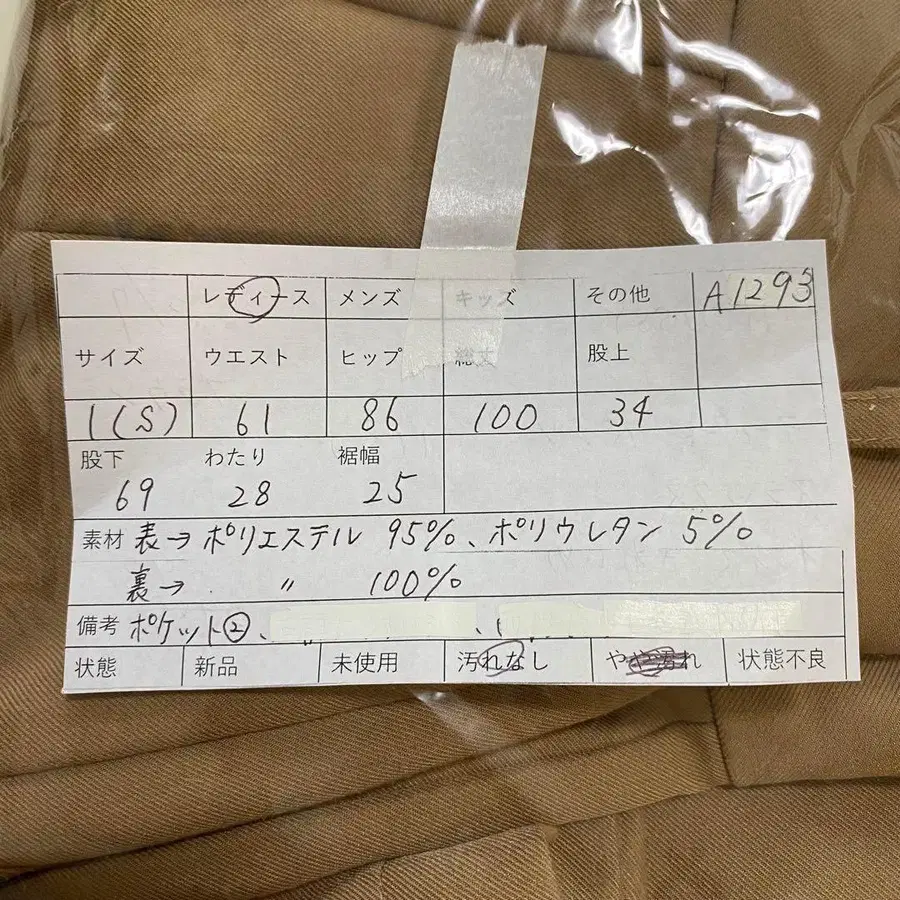 レディース メンズ キッズ その他 A1293
サイズ ウエスト ヒップ 総丈 股上
1(S) 61 86 100 34
股下 わたり 裾幅
69 28 25
素材 表→ポリエステル 95%、ポリウレタン 5%
裏→ 〃 100%
備考 ポケット②、
状態 新品 未使用 汚れなし やや汚れ 状態不良